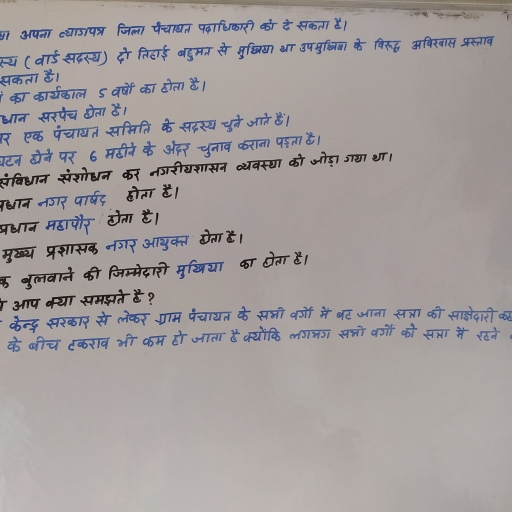 अपना त्यागपत्र जिला पंचायत पदाधिकारी को दे सकता है।
स्य ( वार्ड सदस्य) दो तिहाई बहुमत से मुखिया या उपमुखिया के विरूद्ध अविश्वास प्रस्ताव
सकता है।
का कार्यकाल 5 वर्षो का होता है।
धान सरपंच होता है।
पर एक पंचायत समिति के सदस्य चुने जाते हैं।
घटन होने पर 6 महीने के अंदर चुनाव कराना पड़ता है।
संविधान संशोधन कर नगरीयशासन व्यवस्था को जोड़ा गया था।
प्रधान नगर पार्षद होता है।
प्रधान महापौर होता है।
मुख्य प्रशासक नगर आयुक्त होता है।
क बुलवाने की जिम्मेदारी मुखिया का होता है।
आप क्या समझते है ?
केन्द्र सरकार से लेकर ग्राम पंचायत के सभी वर्गो में बट जाना सत्ता की साझेदारी कह
के बीच टकराव भी कम हो जाता है क्योंकि लगभग सभी वर्गों को सत्ता में रहने